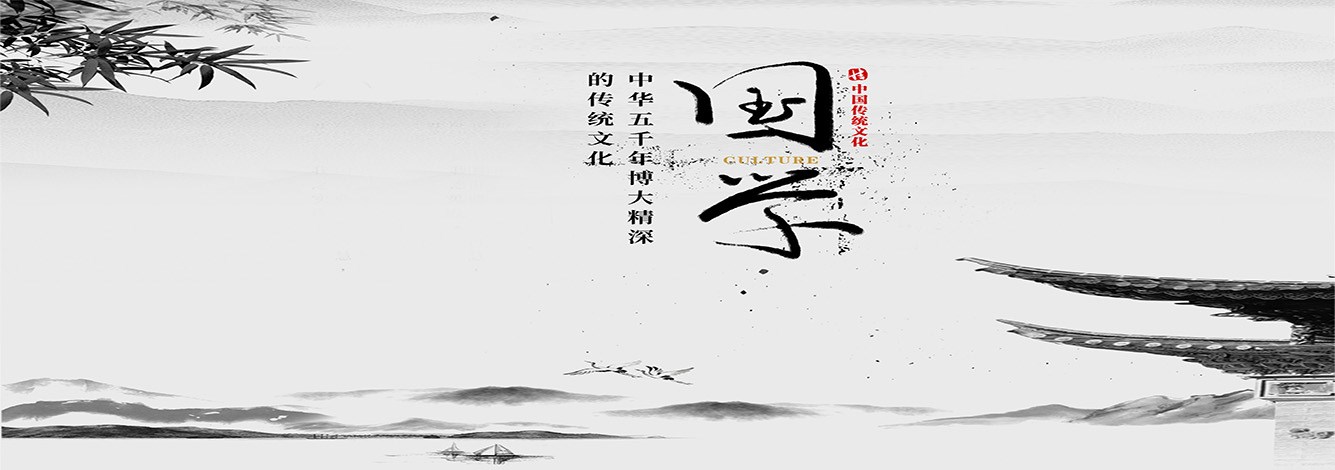 中国传统文化
国学
CULTURE
中华五千年博大精深
的传统文化